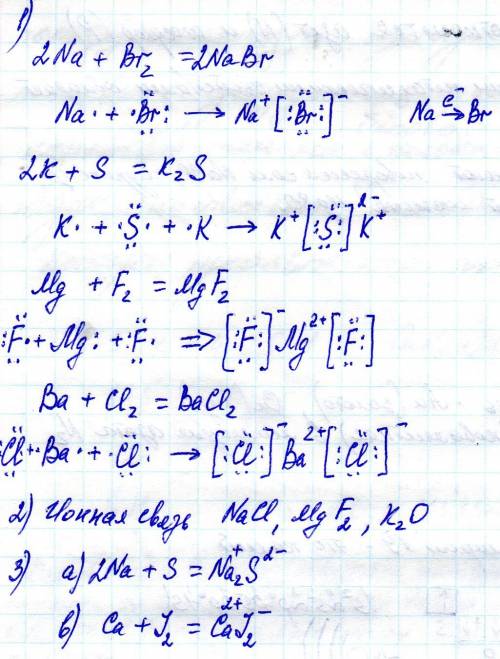 1)
2Na + Br₂ = 2NaBr
Na· + ·Br: → Na⁺[:Br:]⁻ Na e⁻→ Br
2K + S = K₂S
K· + ·S· + ·K → K⁺[:S:]²⁻K⁺
Mg + F₂ = MgF₂
:F· + Mg: + ·F: ⇒ [:F:]⁻Mg²⁺[:F:]
Ba + Cl₂ = BaCl₂
:Cl· + ·Ba· + ·Cl: → [:Cl:]⁻Ba²⁺[:Cl:]⁻
2) Ионная связь NaCl, MgF₂, K₂O
3) а) 2Na + S = Na₂⁺S²⁻
в) Ca + J₂ = Ca²⁺J₂⁻